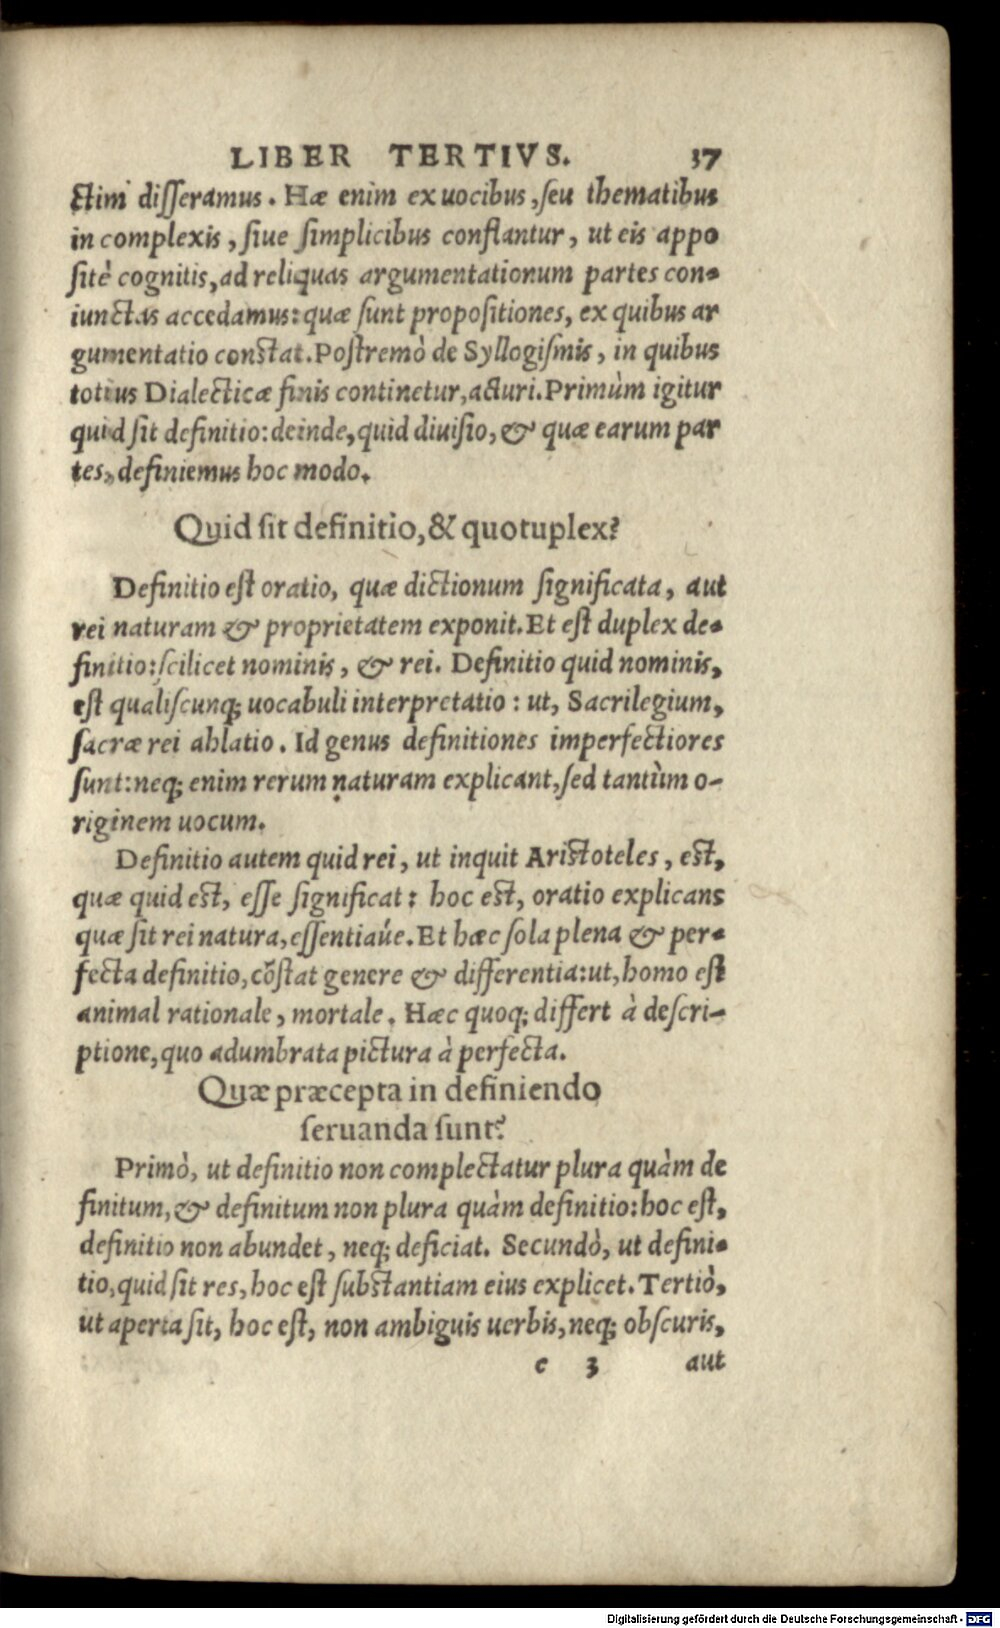 LIBER TERTIVS. 37
ctim disseramus. Hæ enim ex uocibus, seu thematibus
in complexis, siue simplicibus conflantur, ut eis appo
sitè cognitis, ad reliquas argumentationum partes con-
iunctas accedamus: quæ sunt propositiones, ex quibus ar
gumentatio constat. Postremò de Syllogismis, in quibus
totius Dialecticæ finis continetur, acturi. Primùm igitur
quid sit definitio: deinde, quid diuisio, & quæ earum par
tes, definiemus hoc modo.
Quid sit definitio, & quotuplex?
Definitio est oratio, quæ dictionum significata, aut
rei naturam & proprietatem exponit. Et est duplex de-
finitio: scilicet nominis, & rei. Definitio quid nominis,
est qualiscunq; uocabuli interpretatio: ut, Sacrilegium,
sacræ rei ablatio. Id genus definitiones imperfectiores
sunt: neq; enim rerum naturam explicant, sed tantùm o-
riginem uocum.
Definitio autem quid rei, ut inquit Aristoteles, est,
quæ quid est, esse significat: hoc est, oratio explicans
quæ sit rei natura, essentiaúe. Et hæc sola plena & per-
fecta definitio, cõstat genere & differentia: ut, homo est
animal rationale, mortale. Hæc quoq; differt à descri-
ptione, quo adumbrata pictura à perfecta.
Quæ præcepta in definiendo
seruanda sunt?
Primò, ut definitio non complectatur plura quàm de
finitum, & definitum non plura quàm definitio: hoc est,
definitio non abundet, neq; deficiat. Secundò, ut defini-
tio, quid sit res, hoc est substantiam eius explicet. Tertiò,
ut aperta sit, hoc est, non ambiguis uerbis, neq; obscuris,
c 3 aut
Digitalisierung gefördert durch die Deutsche Forschungsgemeinschaft - DFG